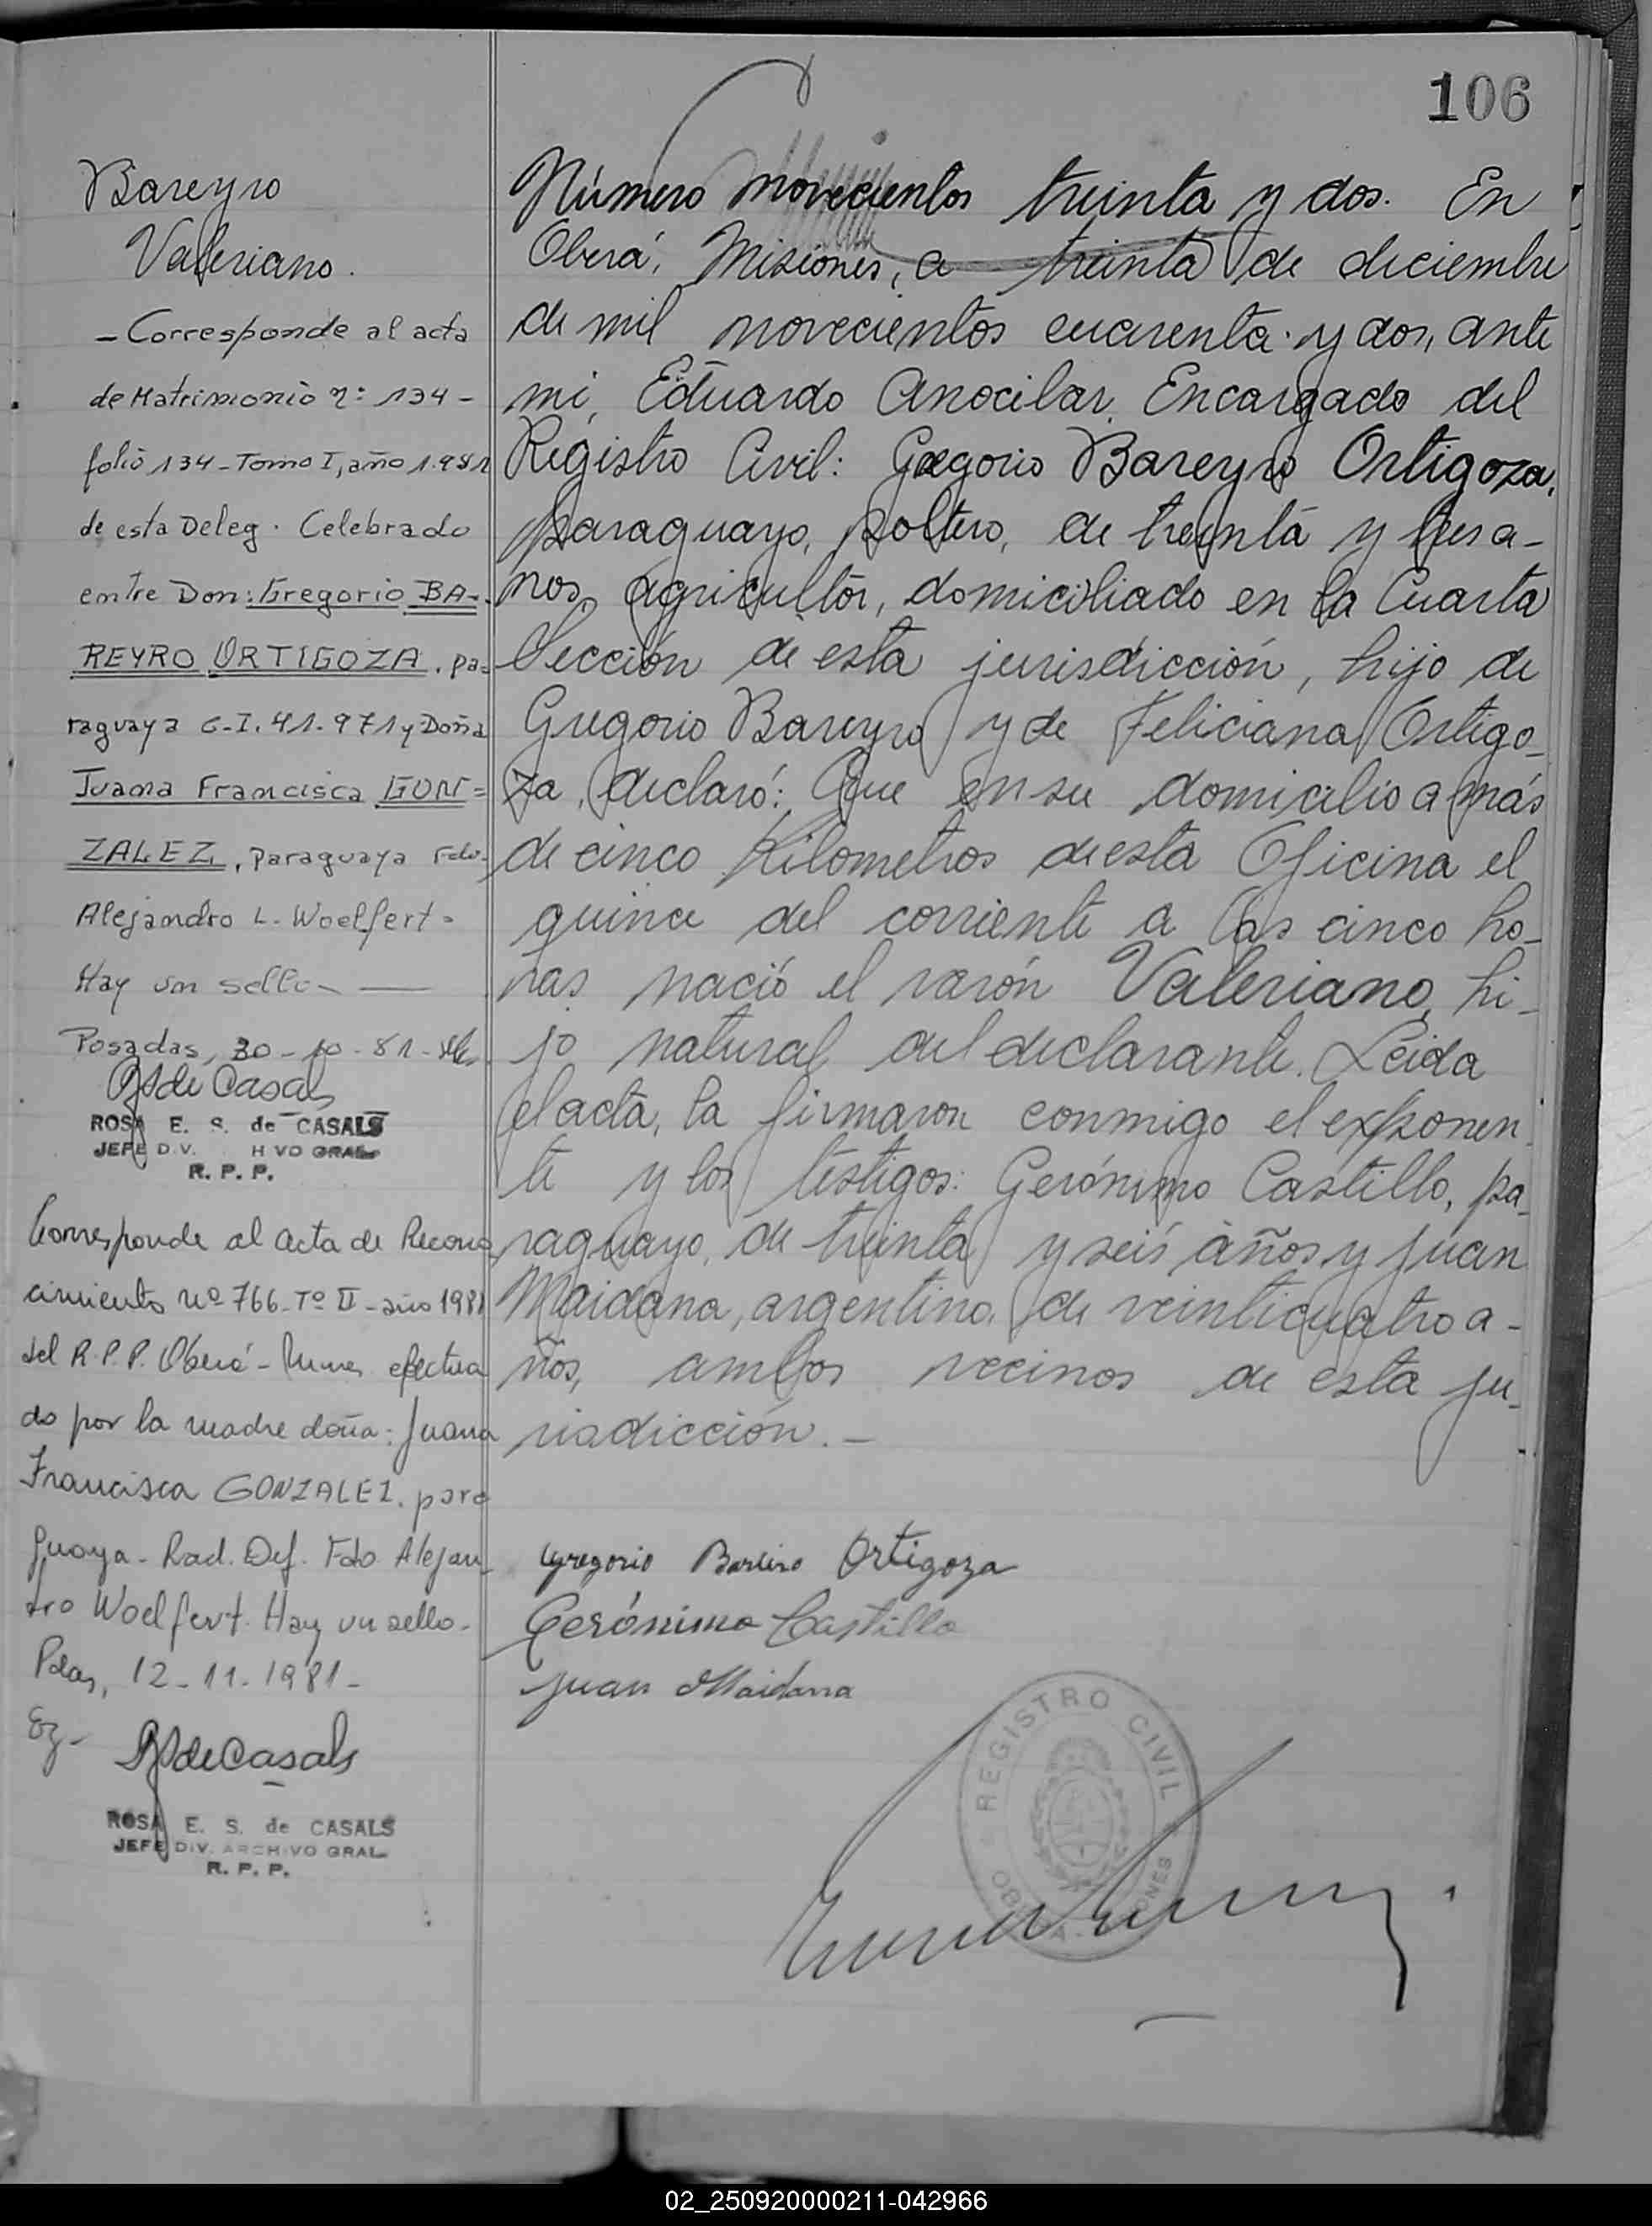 106
Bareyro
Valeriano.
- Corresponde al acta
de Matrimonio nº 134 -
folio 134 - Tomo I, año 1.981
de esta Deleg. Celebrado
entre Don: Gregorio BA-
REYRO ORTIGOZA, pa-
raguaya C.I. 41.971 y Doña
Juana Francisca GON=
ZALEZ, paraguaya Fdo.
Alejandro L. Woelfert -
Hay un sello -
Posadas, 30-10-81-
RSdeCasals
ROSA E. S. de CASALS
JEFE DIV. HVO GRAL
R. P. P.
Corresponde al acta de Recono
cimiento nº 766 - Tº II - año 1981
del R.P.P. Oberá - efectua
do por la madre doña: Juana
Francisca GONZALEZ. para
guaya - Rad. Def. Fdo Alejan-
dro Woelfert. Hay un sello.
Pdas, 12-11-1981-
RSdeCasals
ROSA E. S. de CASALS
JEFE DIV. ARCHIVO GRAL
R. P. P.
Número novecientos treinta y dos. En
Oberá, Misiones, a treinta de diciembre
de mil novecientos cuarenta y dos, ante
mi, Eduardo Anocibar, Encargado del
Registro Civil: Gregorio Bareyro Ortigoza,
paraguayo, soltero, de treinta y tres a-
ños, agricultor, domiciliado en la Cuarta
Sección de esta jurisdicción, hijo de
Gregorio Bareyro y de Feliciana Ortigo-
za, declaró: Que en su domicilio a más
de cinco Kilometros de esta Oficina el
quince del corriente a las cinco ho-
ras nació el varón Valeriano, hi-
jo natural del declarante. Leida
el acta, la firmaron conmigo el exponen-
te y los testigos: Gerónimo Castillo, pa-
raguayo, de treinta y seis años y Juan
Maidana, argentino, de veinticuatro a-
ños, ambos vecinos de esta ju-
risdicción. -
Gregorio Bareiro Ortigoza
Gerónimo Castillo
Juan Maidana
REGISTRO CIVIL
OBERA - MISIONES
02_250920000211-042966